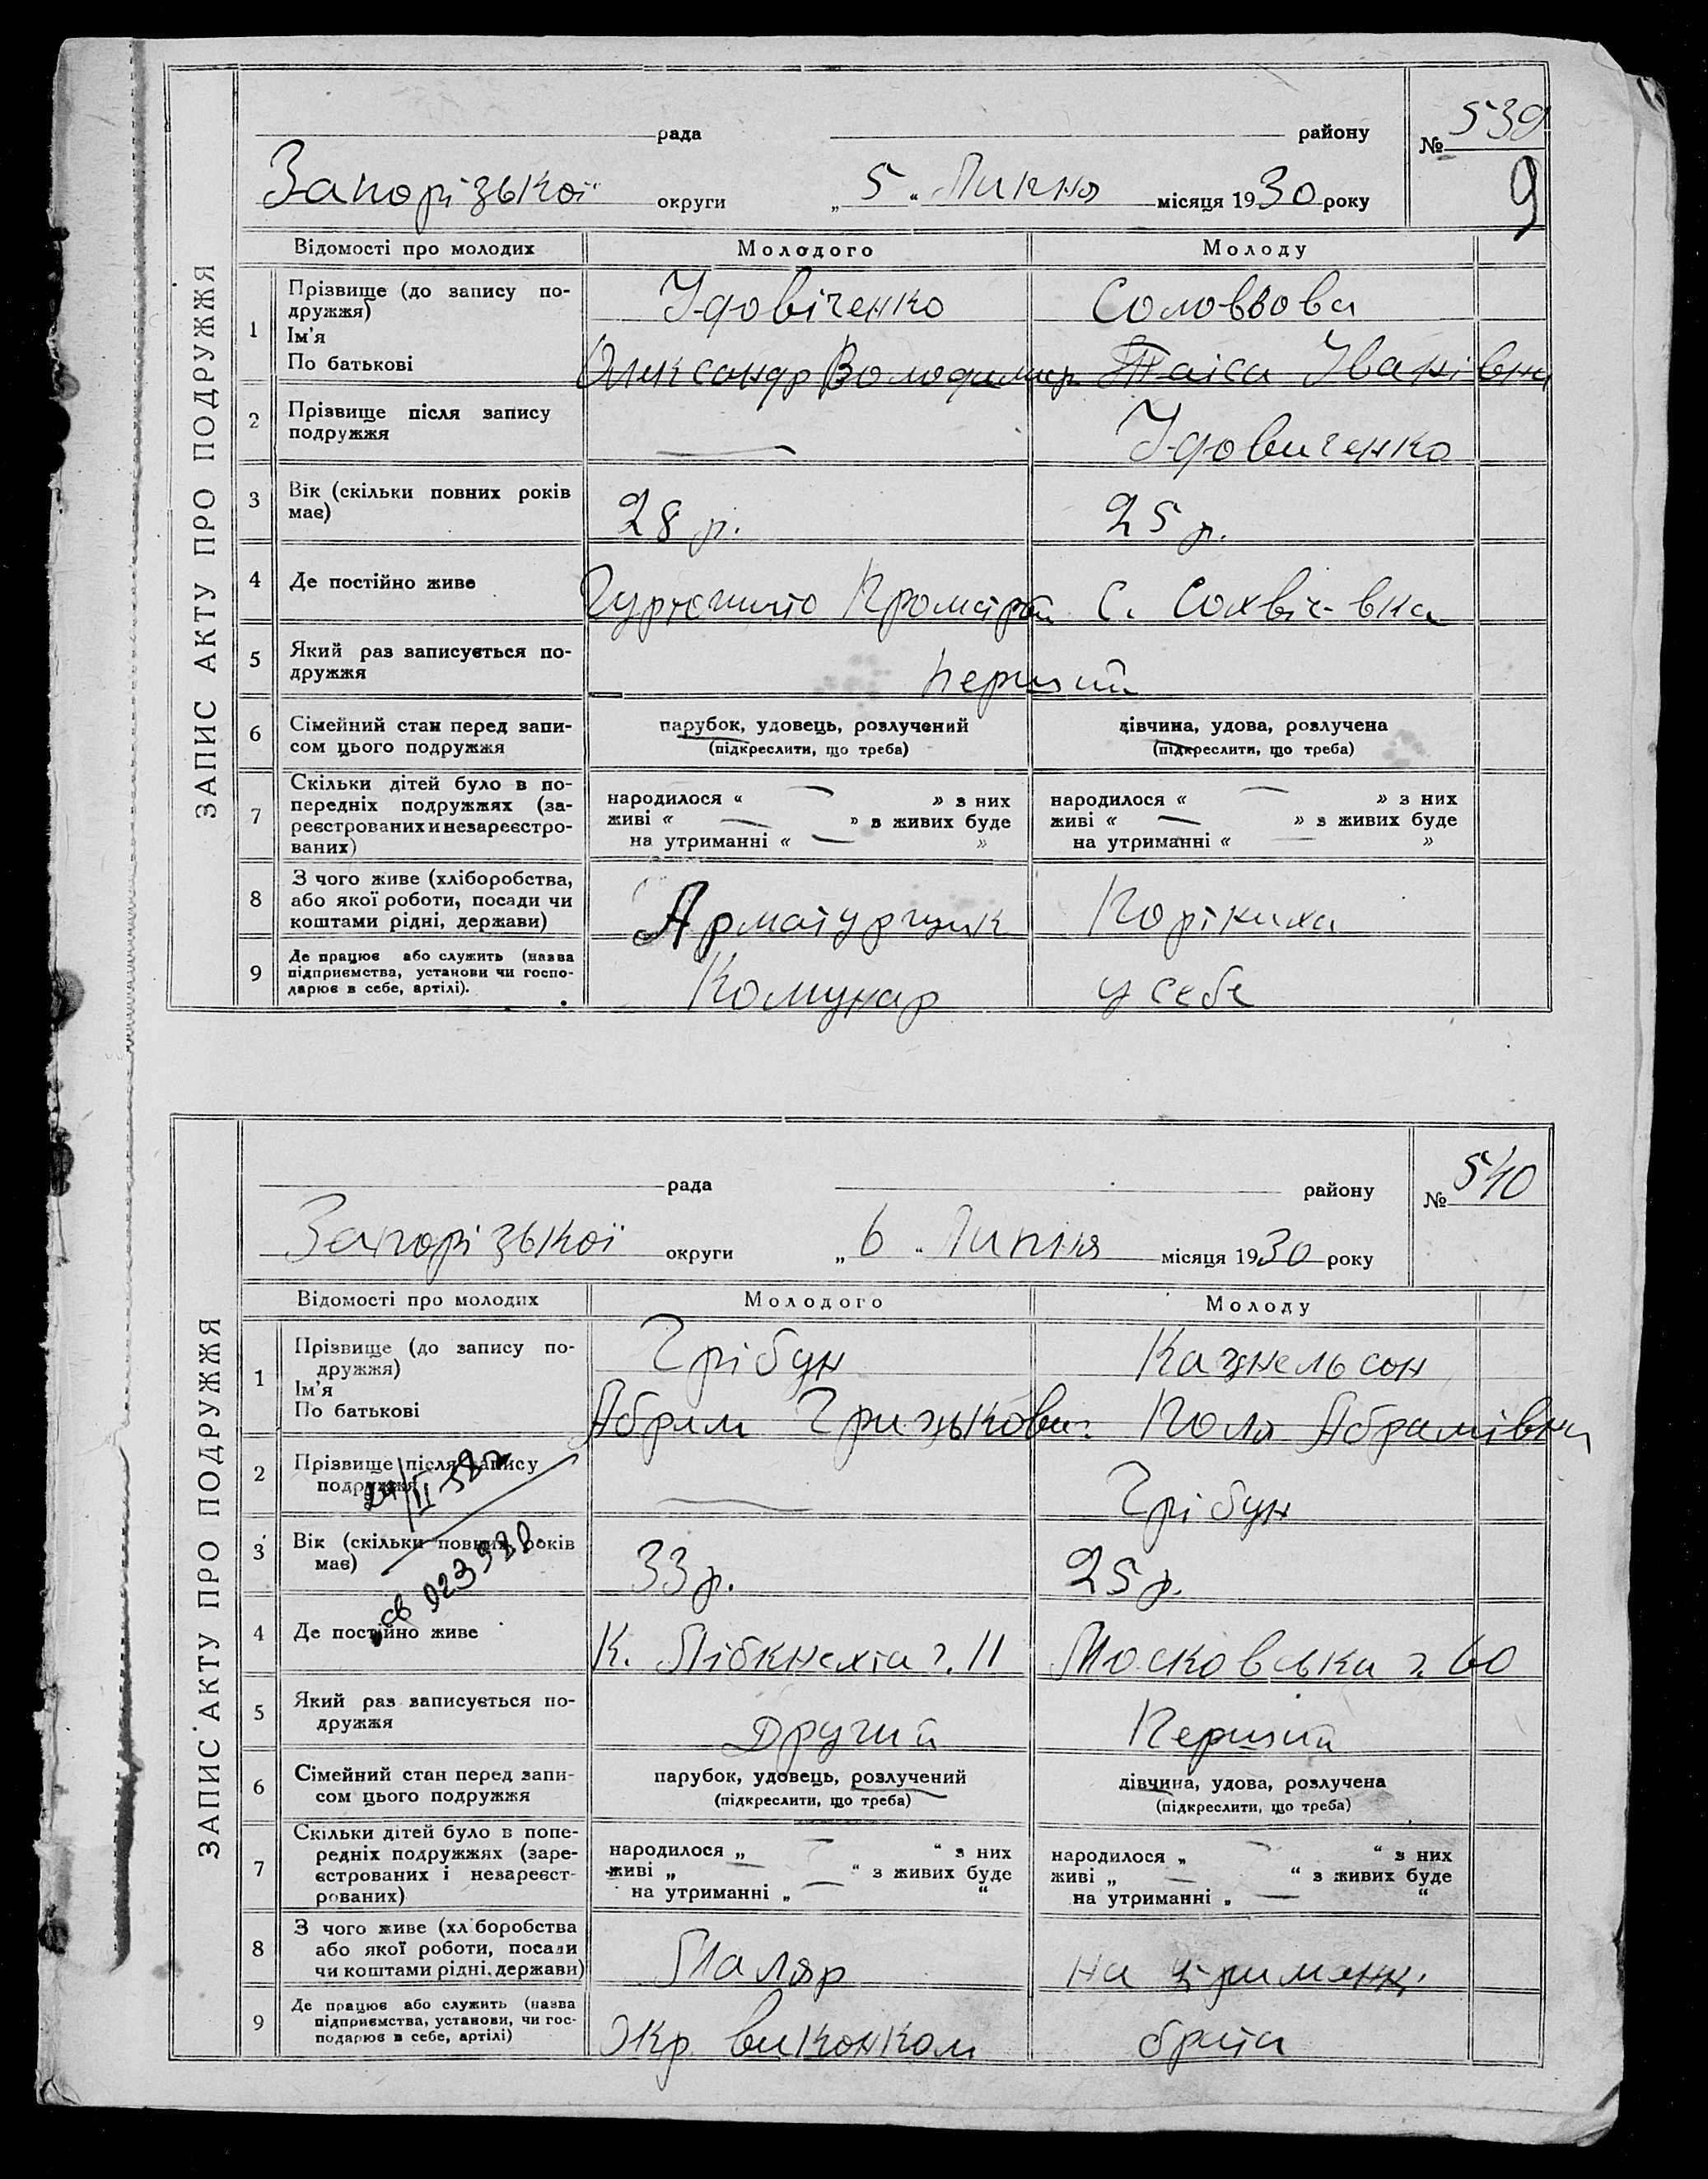 ЗАПИС АКТУ ПРО ПОДРУЖЖЯ
рада району № 539
Запорізької округи „ 5 “ Липня місяця 1930 року
9
Відомості про молодих Молодого Молоду
1 Прізвище (до запису по-
дружжя) Удовіченко
Ім'я
По батькові Олександр Володимир. Таіса Іванівна
2 Прізвище після запису
подружжя — Удовиченко
3 Вік (скільки повних років
має) 28 р. 25 р.
4 Де постійно живе
5 Який раз записується по-
дружжя перший
6 Сімейний стан перед запи-
сом цього подружжя
парубок, удовець, розлучений дівчина, удова, розлучена
(підкреслити, що треба) (підкреслити, що треба)
7 Скільки дітей було в по-
передніх подружжях (за-
реєстрованих и незареєстро-
ваних)
народилося « — » з них народилося « — » з них
живі « — » з живих буде живі « — » з живих буде
на утриманні « — » на утриманні « — »
8 З чого живе (хліборобства,
або якої роботи, посади чи
коштами рідні, держави) Арматурщик
9 Де працює або служить (назва
підприємства, установи чи госпо-
дарює в себе, артілі). Комунар у себе
ЗАПИС АКТУ ПРО ПОДРУЖЖЯ
рада району № 540
Запорізької округи „ 6 “ Липня місяця 1930 року
Відомості про молодих Молодого Молоду
1 Прізвище (до запису по-
дружжя) Грібун Кацнельсон
Ім'я
По батькові Абрам Поля Абрамівна
2 Прізвище після запису
подружжя — Грібун
3 Вік (скільки повних років
має) 33 р. 25 р.
4 Де постійно живе К. Лібкнехта ч. 11 Московська ч. 60
5 Який раз записується по-
дружжя Другий Перший
6 Сімейний стан перед запи-
сом цього подружжя
парубок, удовець, розлучений дівчина, удова, розлучена
(підкреслити, що треба) (підкреслити, що треба)
7 Скільки дітей було в попе-
редніх подружжях (заре-
єстрованих і незареєст-
рованих)
народилося „ — “ з них народилося „ — “ з них
живі „ — “ з живих буде живі „ — “ з живих буде
на утриманні „ — “ на утриманні „ — “
8 З чого живе (хліборобства
або якої роботи, посади
чи коштами рідні, держави) Маляр на утриманн.
9 Де працює або служить (назва
підприємства, установи, чи гос-
подарює в себе, артілі) Окр виконком брата